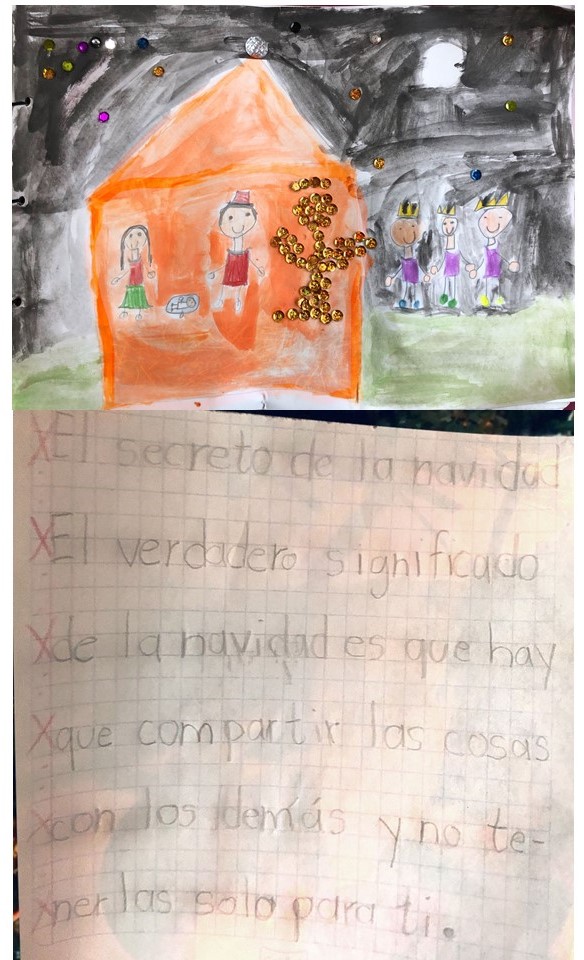 XEl secreto de la navidad
XEl verdadero significado
Xde la navidad es que hay
Xque compartir las cosas
Xcon los demás y no te-
Xner las solo para ti.